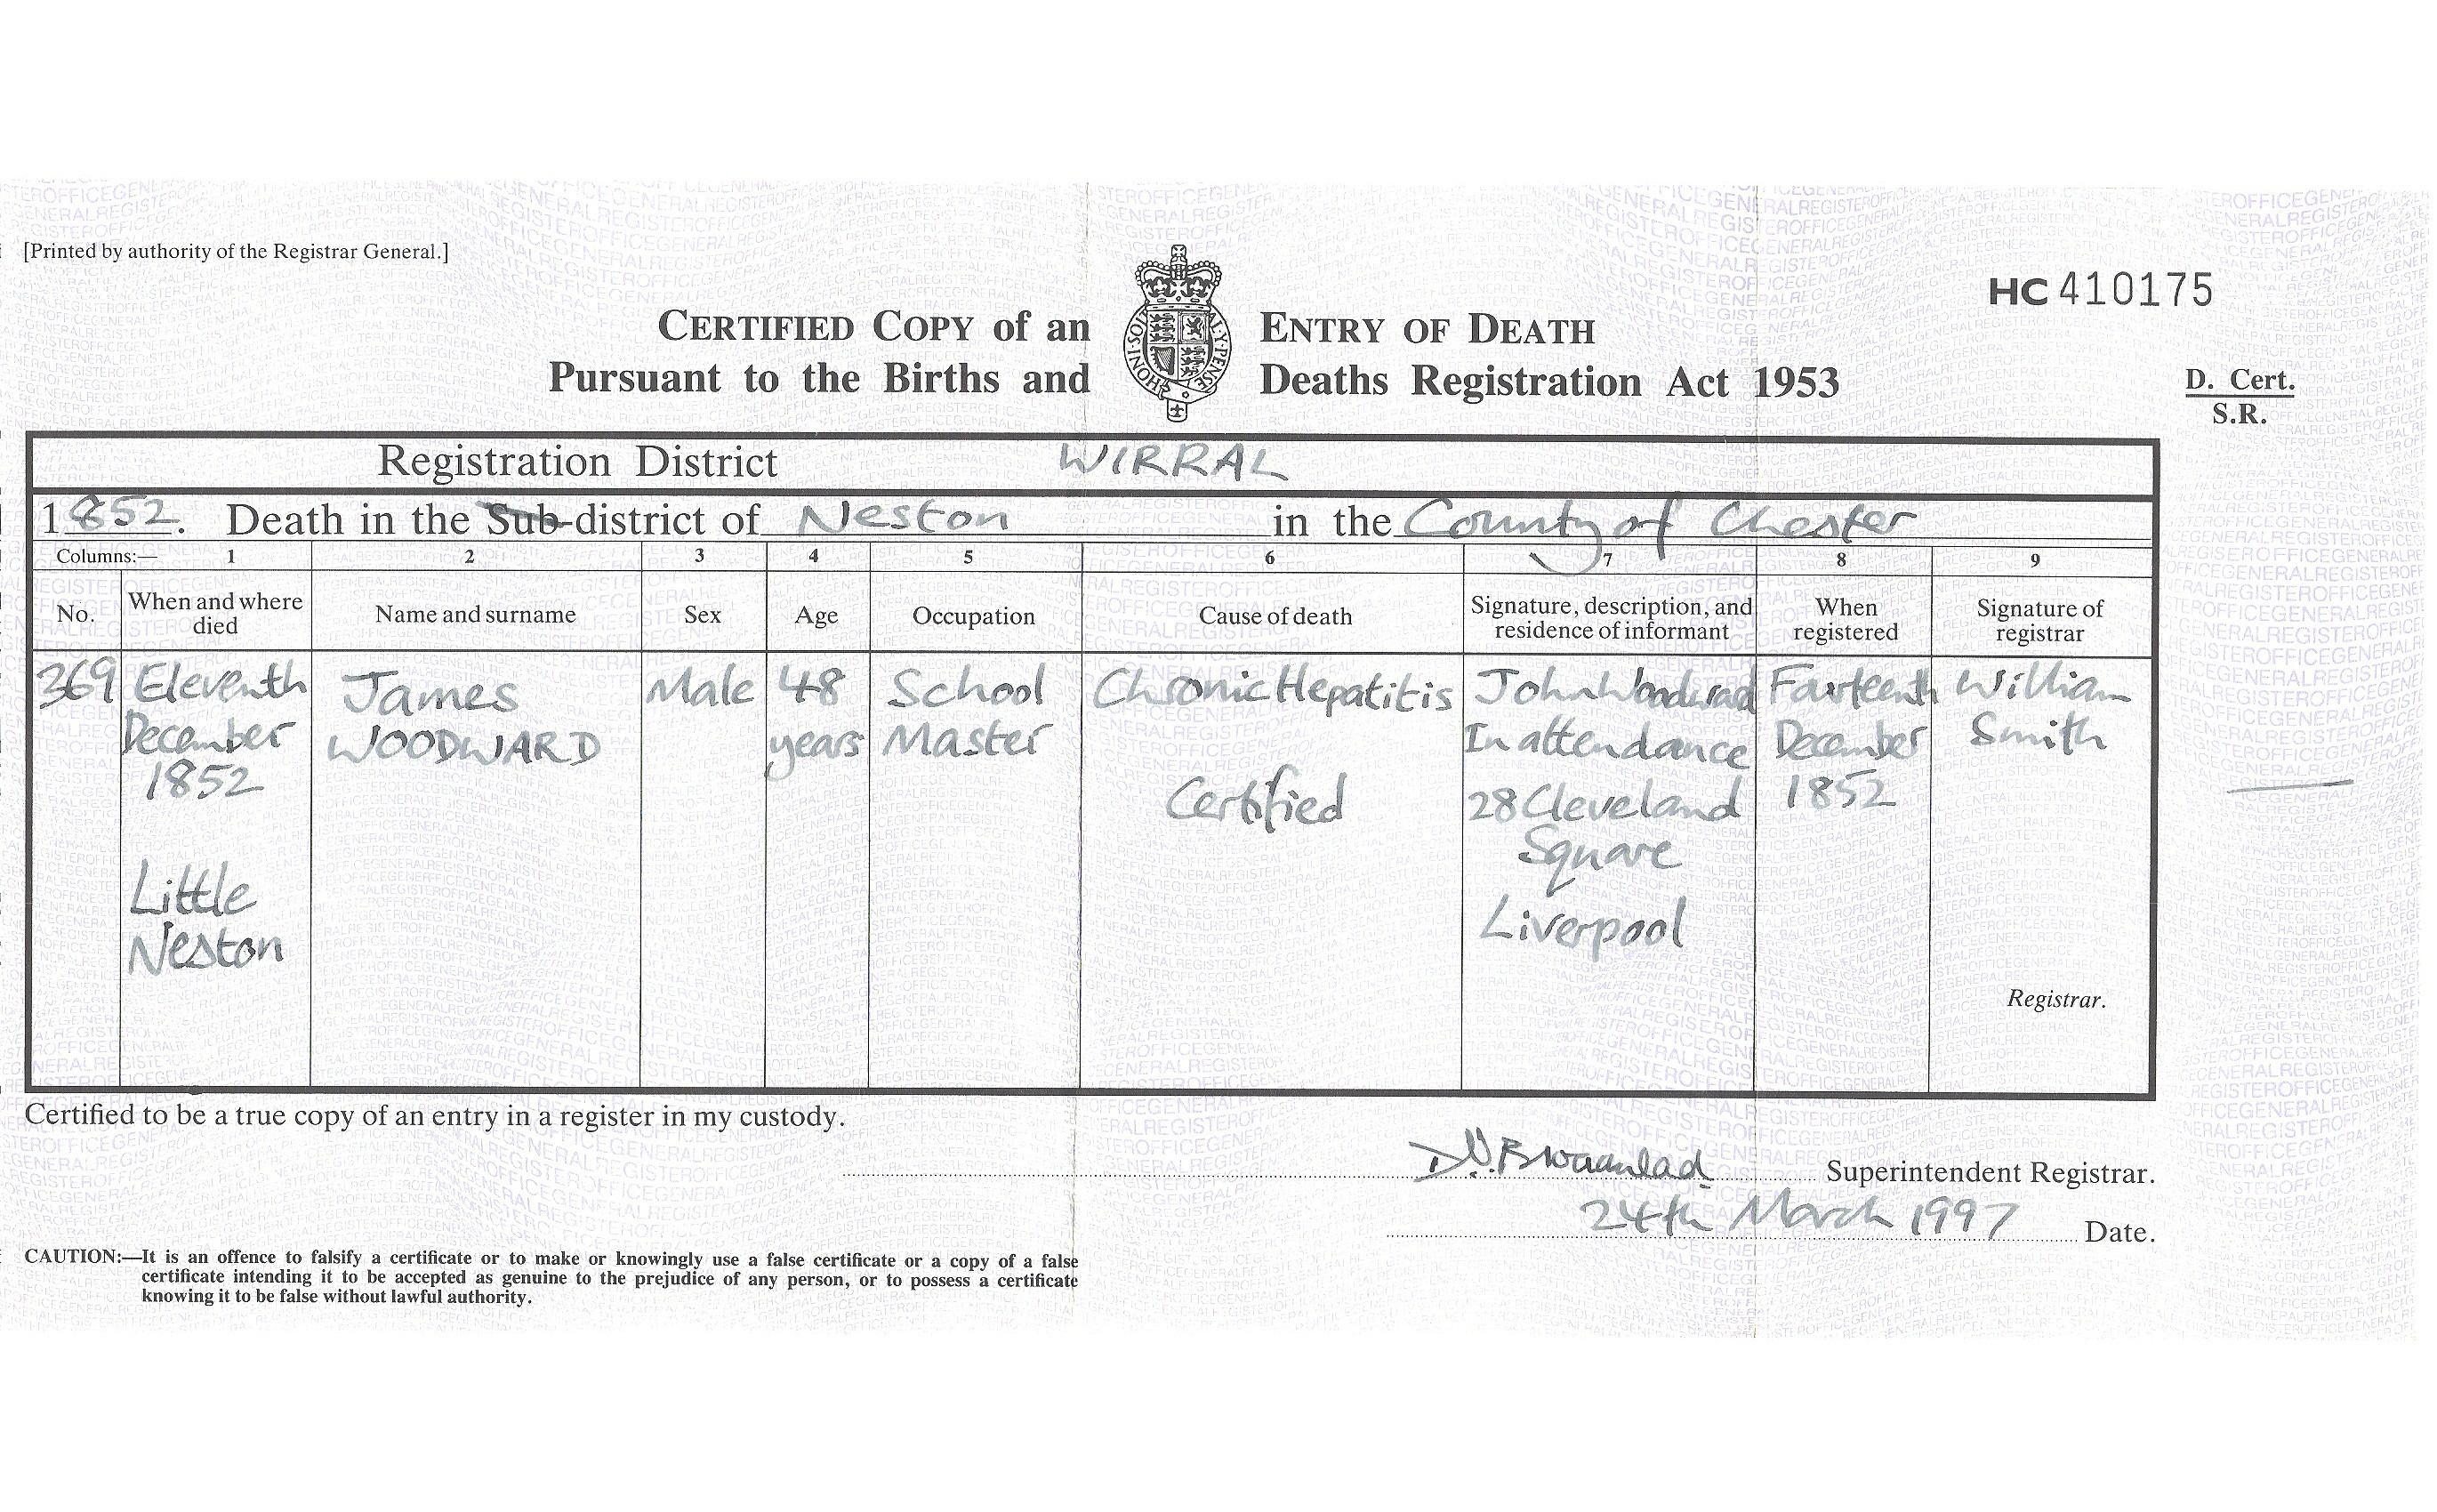 [Printed by authority of the Registrar General.]
HC 410175
CERTIFIED COPY of an ENTRY OF DEATH
Pursuant to the Births and Deaths Registration Act 1953
D. Cert.
S.R.
Registration District WIRRAL
1852. Death in the Sub-district of Neston in the County of Chester
Columns:— 1 2 3 4 5 6 7 8 9
No. When and where died Name and surname Sex Age Occupation Cause of death Signature, description, and residence of informant When registered Signature of registrar
369 Eleventh James Male 48 School Chronic Hepatitis John Woodward Fourteenth William
December WOODWARD years Master In attendance December Smith
1852 Certified 28 Cleveland 1852
Square
Little Liverpool
Neston
Registrar.
Certified to be a true copy of an entry in a register in my custody.
Superintendent Registrar.
24th March 1997 Date.
CAUTION:—It is an offence to falsify a certificate or to make or knowingly use a false certificate or a copy of a false
certificate intending it to be accepted as genuine to the prejudice of any person, or to possess a certificate
knowing it to be false without lawful authority.